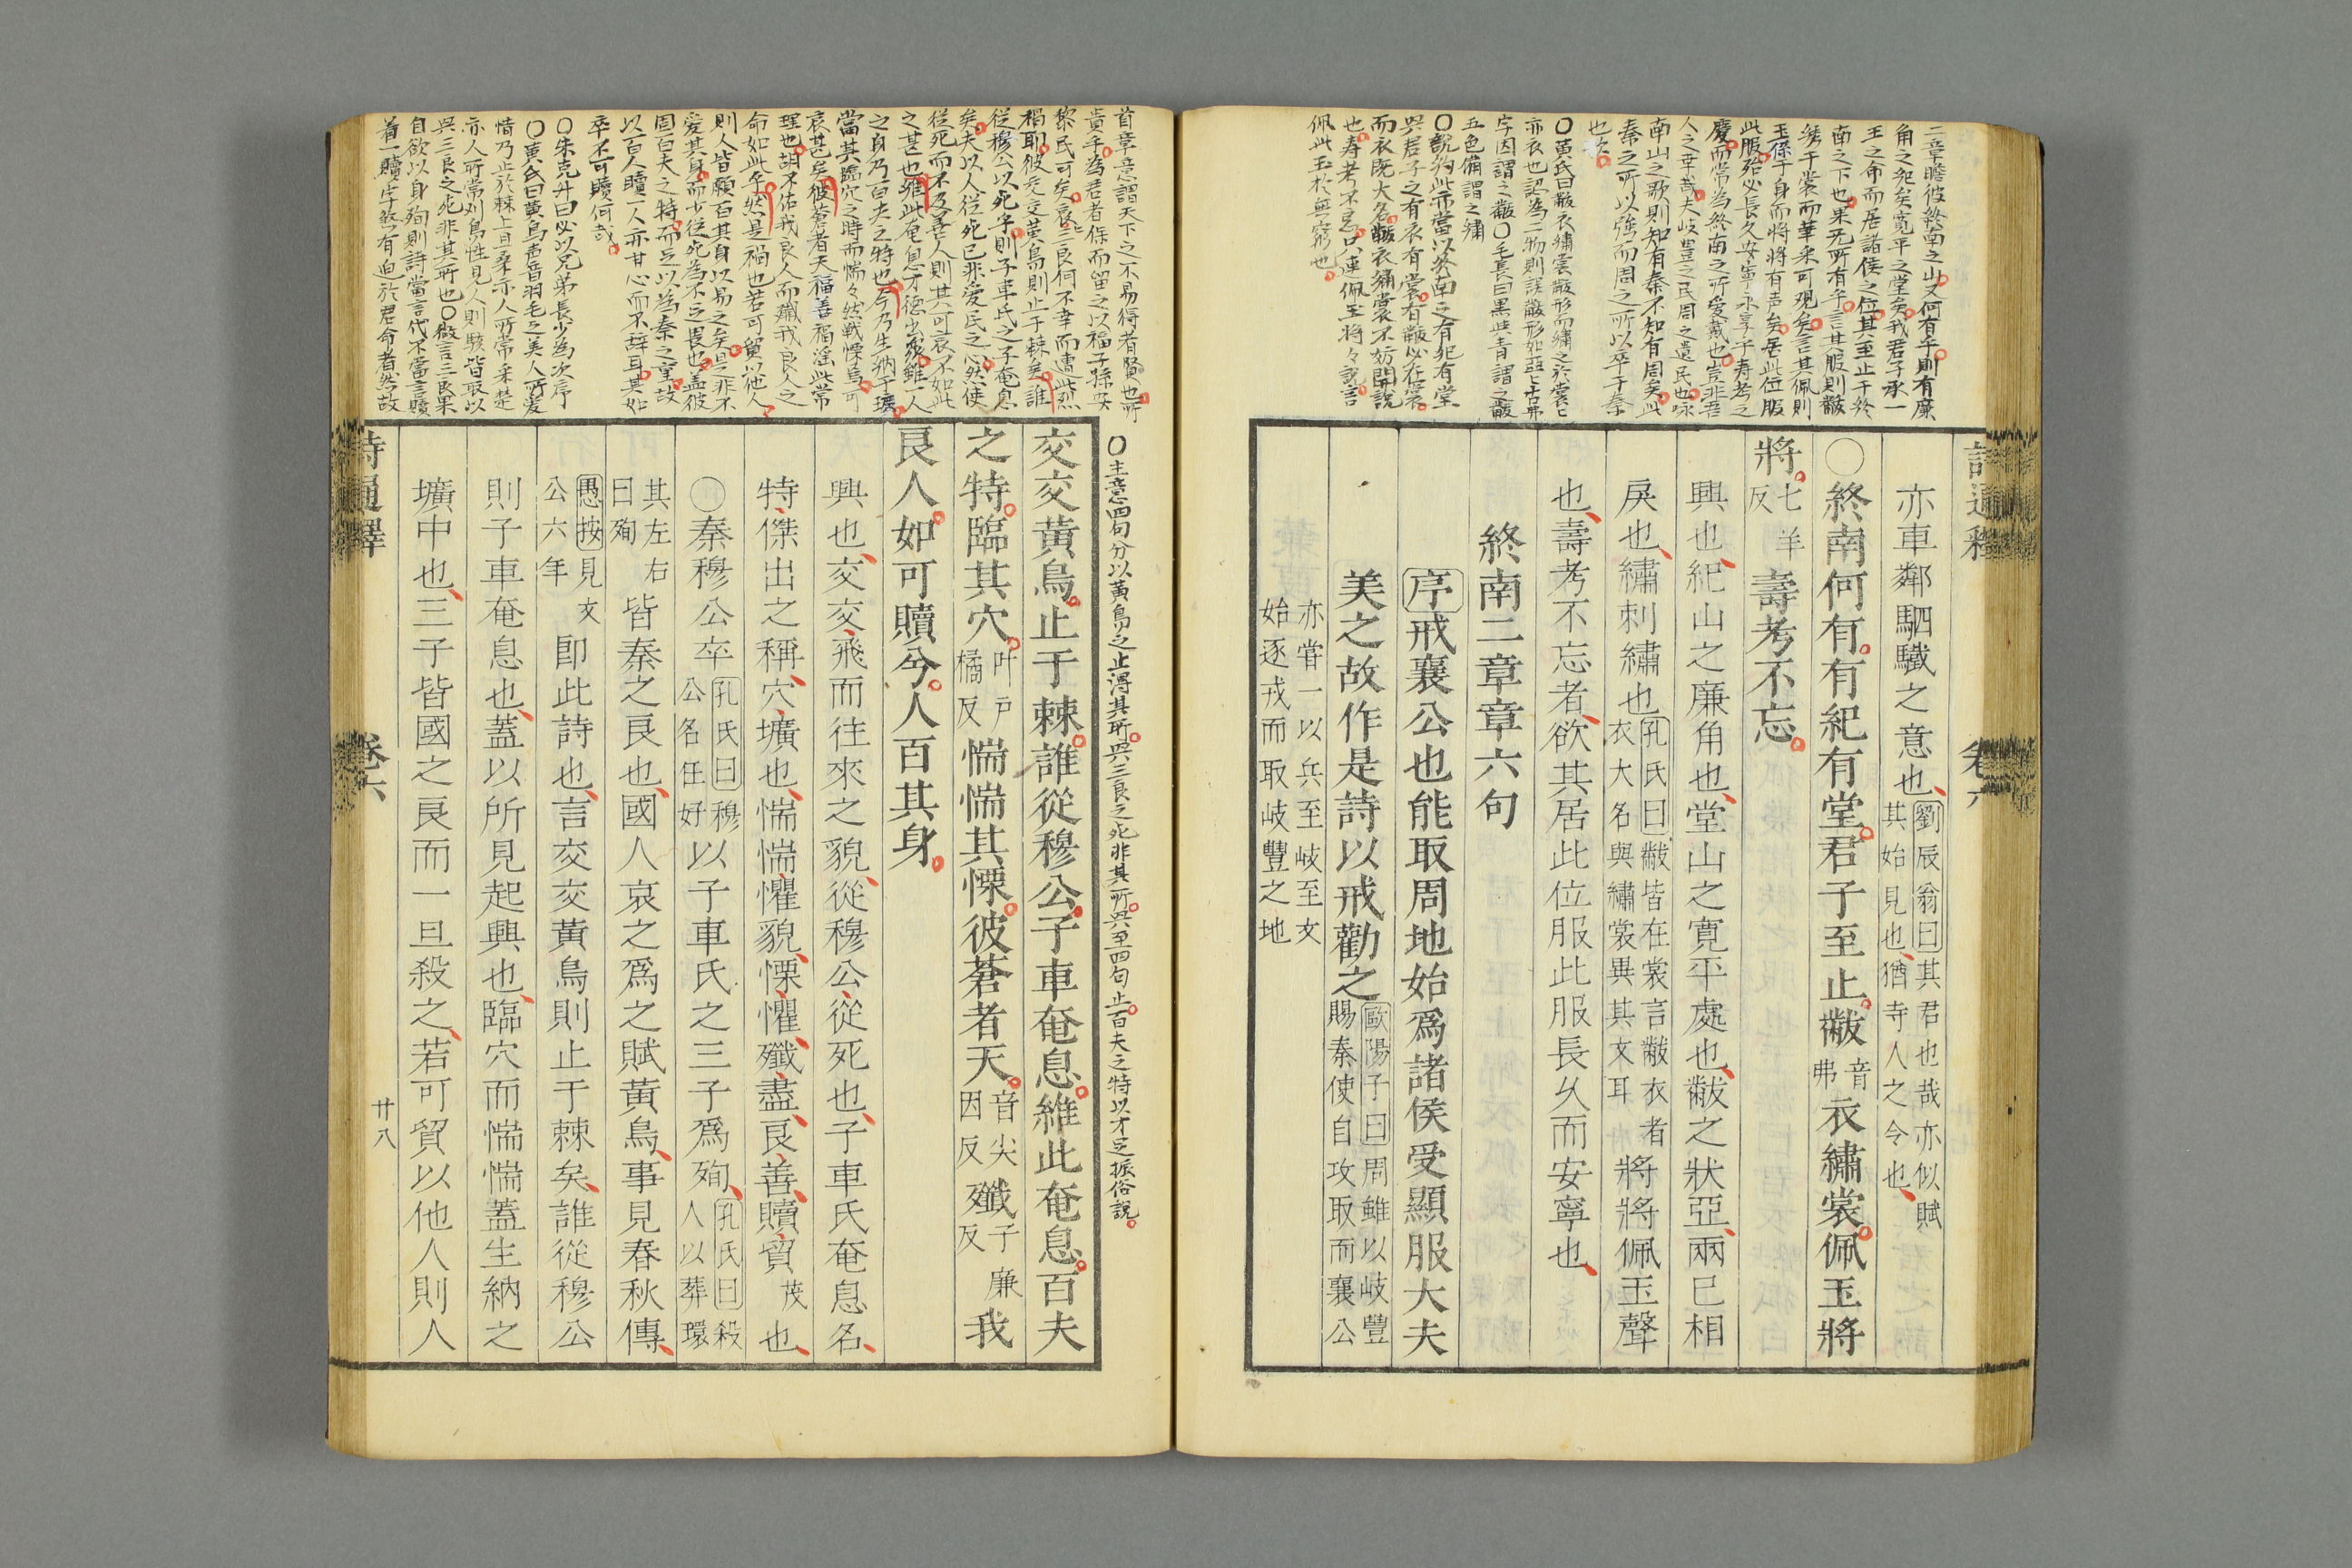 二章瞻彼終南之山又何有乎則有廉
角之紀矣寛平之堂矣我君子承一
王之命而居諸侯之位其至止于終
南之下也果无所有乎言其服則黻
綉于裳而華采可观矣言其佩則
玉係于身而將將有声矣居此位服
此服殆必長久安寧永享乎寿考之
慶而常為終南之所愛戴也豈非吾
人之幸哉夫岐豊之民周之遺民也咏
南山之歌則知有秦不知有周矣此
秦之所以強而周之所以卒于秦
也欤
〇黄氏曰黻衣繡裳黻形而繡之於裳上
亦衣也認為二物則誤黻形如亞亾古弗
字因謂之黻〇毛長曰黒与青謂之黻
五色備謂之繍
〇說約此亦當以終南之有紀有堂
興君子之有衣有裳有黻必在裳
而衣既大名黻衣繍裳不妨閗説
也寿考不忘只連佩玉將々說言
佩此玉於無窮也
詩通釋
卷六
亦車鄰駟驖之意也劉辰翁曰其君也哉亦似賦
其始見也猶寺人之令也
〇終南何有有紀有堂君子至止黻音弗衣繡裳佩玉將
將七羊反壽考不忘
興也紀山之廉角也堂山之寛平處也黻之狀亞兩已相
戾也繡刺繡也孔氏曰黻皆在裳言黻衣者
衣大名與繡裳異其文耳將將佩玉聲
也壽考不忘者欲其居此位服此服長久而安寧也
終南二章章六句
序戒襄公也能取周地始爲諸侯受顯服大夫
美之故作是詩以戒勸之歐陽子曰周雖以岐豐
賜秦使自攻取而襄公
亦嘗一以兵至岐至文
始逐戎而取岐豐之地
首章意謂天下之不易得者賢也所
貴乎為君者保而留之以福子孫安
黎民可矣哀三良何不幸而遭此烈
禍耶彼交交黄鳥則止于棘矣誰
從穆公以死乎則子車氏之子奄息
矣夫以人從死已非愛民之心然使
從死而不及善人則其可哀不如此
之甚也維此奄息才德出衆雖一人
之身乃百夫之特也今乃生納于壙
當其臨穴之時而惴々然戰慄焉可
哀甚矣彼蒼者天福善禍淫此常
理也胡不佑我良人而殲我良人之
命如此乎然是禍也若可貿以他人
則人皆願百其身以易之矣是非不
愛其身而少從死為不足畏也盖彼
固百夫之特而足以為秦之重故
以百人贖一人亦甘心而不辞耳其如
卒不可贖何哉
〇朱克升曰必以兄弟長少為次序
〇黄氏曰黄鳥声音羽毛之美人所愛
惜乃止於棘上旦桑示人所常采楚
亦人所常刈鳥性見人則駭皆取以
興三良之死非其所也〇微言三良果
自欲以身殉則詩當言代不當言贖
着一贖字故有迫於君命者然故
〇主意四句分以黄鳥之止得其所興三良之死非其所興至四句止百夫之特以才足振俗説
交交黃鳥止于棘誰從穆公子車奄息維此奄息百夫
之特臨其穴叶戸橘反惴惴其慄彼蒼者天音尖因反殲子廉反我
良人如可贖兮人百其身
興也交交飛而往來之貌從穆公從死也子車氏奄息名
特傑出之稱穴壙也惴惴懼貌慄懼殲盡良善贖貿茂也
〇秦穆公卒孔氏曰穆公名任好以子車氏之三子爲殉孔氏曰殺人以葬環
其左右曰殉皆秦之良也國人哀之爲之賦黃鳥事見春秋傳
愚按見文公六年即此詩也言交交黃鳥則止于棘矣誰從穆公
則子車奄息也蓋以所見起興也臨穴而惴惴蓋生納之
壙中也三子皆國之良而一旦殺之若可貿以他人則人
詩通釋
卷六
廿八